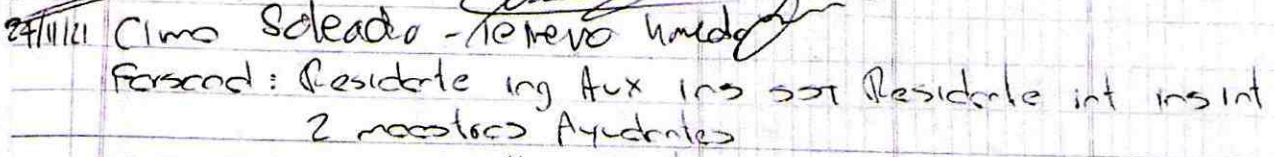 27/11/21 Clima Soleado - Terreno humedo
Personal: Residente ing Aux ing sst Residente int ing int
2 maestros Ayudantes